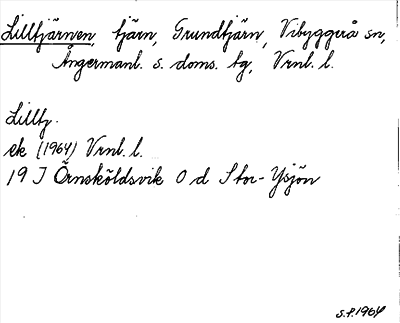 Lilltjärnen, tjärn, Grundtjärn, Vibyggerå sn,
Ångermanl. s. doms. tg, Vrnl. l.
Lilltj.
ek (1964) Vrnl. l.
19 J Örnsköldsvik O d Stor-Ysjön
S.P. 1964